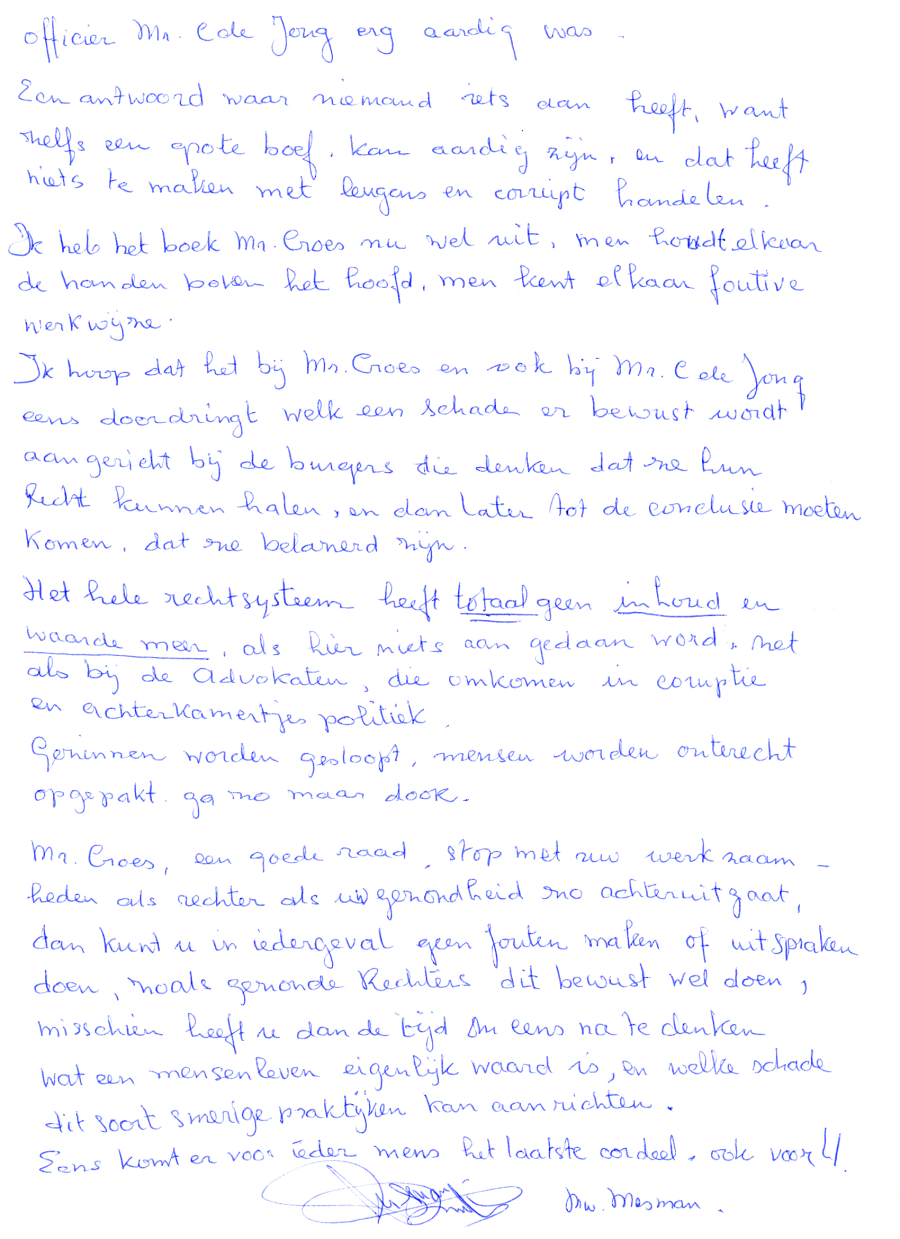 officier Mr. C de Jong erg aardig was.
Een antwoord waar niemand iets aan heeft, want
zelfs een grote boef, kan aardig zijn, en dat heeft
niets te maken met leugens en corrupt handelen.
Ik heb het boek Mr. Croes nu wel uit, men houdt elkaar
de handen boven het hoofd, men kent elkaar foutive
werkwijze.
Ik hoop dat het bij Mr. Croes en ook bij Mr. C de Jong
eens doordringt welk een schade er bewust wordt
aangericht bij de burgers die denken dat ze hun
Recht kunnen halen, en dan later tot de conclusie moeten
komen, dat ze belazerd zijn.
Het hele rechtsysteem heeft totaal geen inhoud en
waarde meer, als hier niets aan gedaan word, net
als bij de Advokaten, die omkomen in coruptie
en achterkamertjes politiek.
Gezinnen worden gesloopt, mensen worden onterecht
opgepakt. ga zo maar door.
Mr. Croes, een goede raad, stop met uw werkzaam-
heden als rechter als uw gezondheid zo achteruitgaat,
dan kunt u in iedergeval geen fouten maken of uitspraken
doen, zoals gezonde Rechters dit bewust wel doen,
misschien heeft u dan de tijd om eens na te denken
wat een mensenleven eigenlijk waard is, en welke schade
dit soort smerige praktijken kan aanrichten.
Eens komt er voor ieder mens het laatste oordeel, ook voor U.
Mw. Mesman.